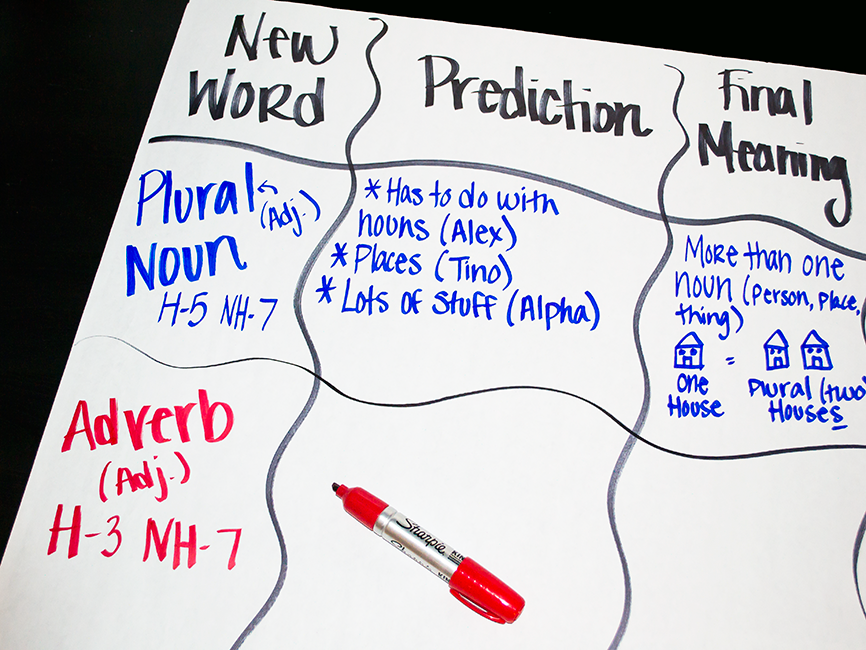 New
Word
Prediction
Final
Meaning
Plural
(Adj.)
Noun
H-5 NH-7
* Has to do with
nouns (Alex)
* Places (Tino)
* Lots of Stuff (Alpha)
More than one
noun (person, place,
thing)
=
one
House
Plural (two)
Houses
Adverb
(Adj.)
H-3 NH-7
Sharpie
KIN